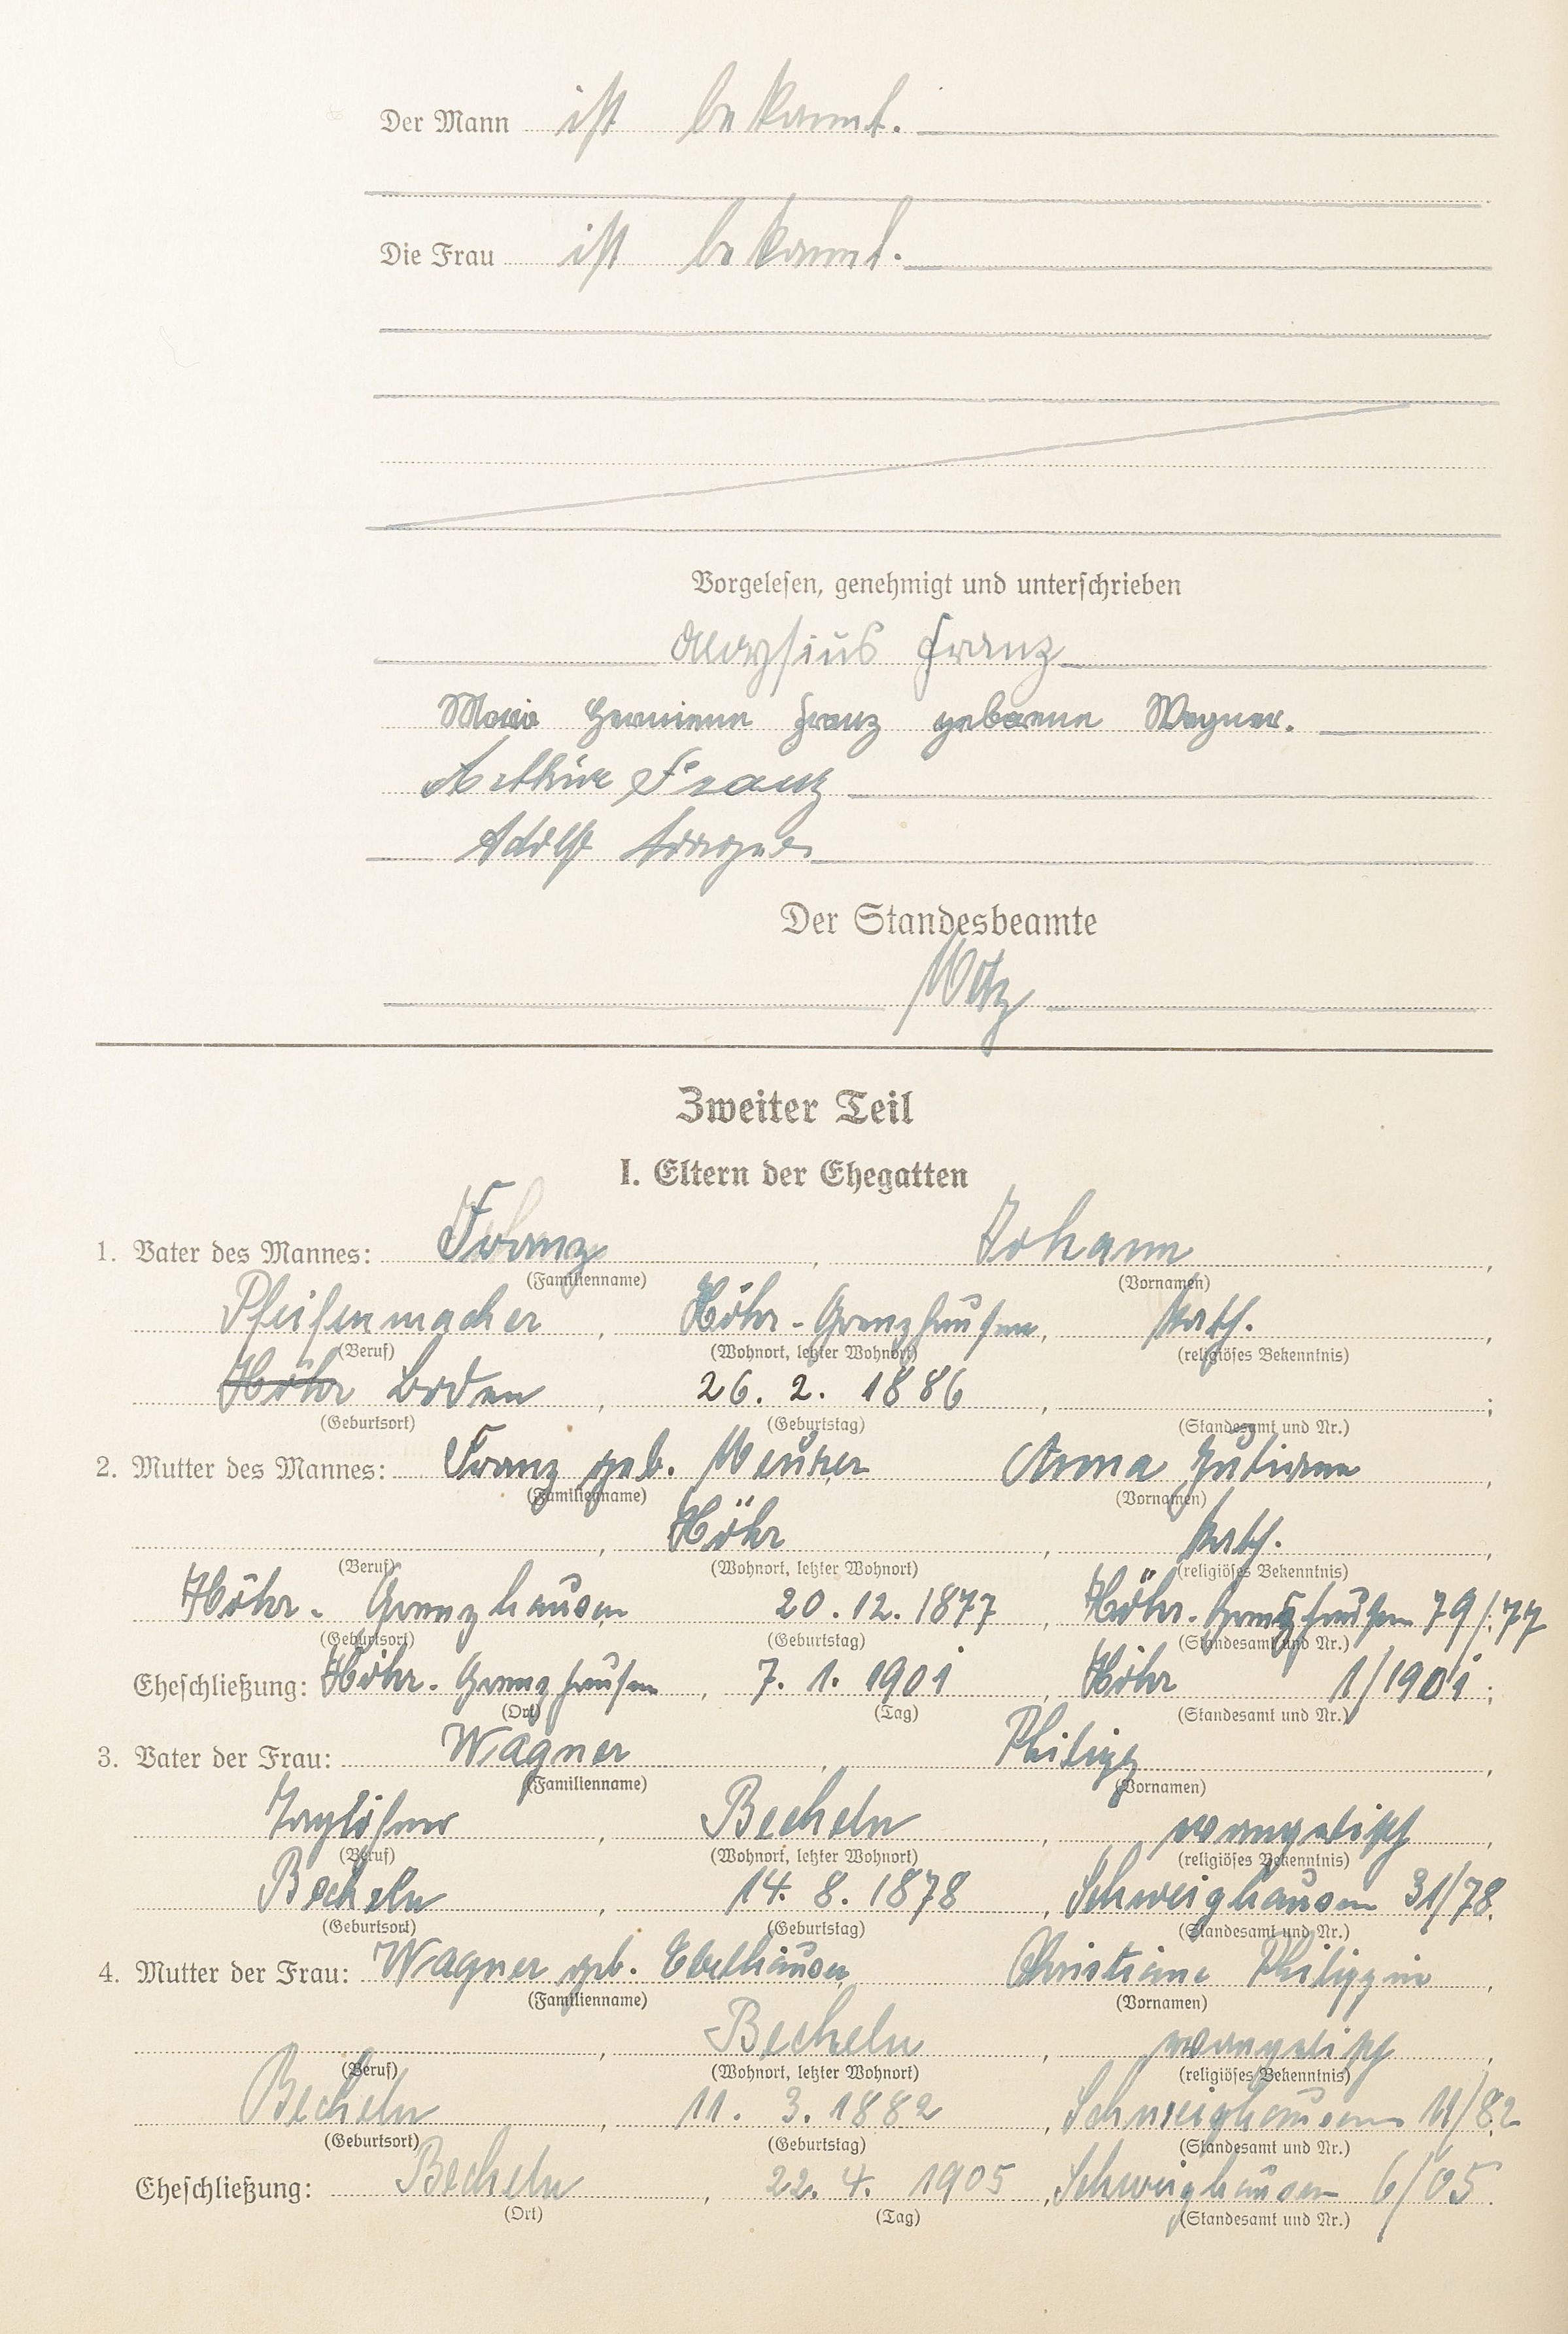 Der Mann ist bekannt.
Die Frau ist bekannt.
Vorgelesen, genehmigt und unterschrieben
Aloysius Franz
Maria Hermiene Franz geborene Wagner.
Arthur Franz
Adolf Wagner
Der Standesbeamte
Zweiter Teil
I. Eltern der Ehegatten
1. Vater des Mannes: Franz, Johann,
(Familienname) (Vornamen)
Pfeifenmacher, Höhr-Grenzhausen, kath.,
(Beruf) (Wohnort, letzter Wohnort) (religiöses Bekenntnis)
Höhr Boden, 26. 2. 1886, ;
(Geburtsort) (Geburtstag) (Standesamt und Nr.)
2. Mutter des Mannes: Franz geb. Meurer Anna Juliane,
(Familienname) (Vornamen)
, Höhr, kath.,
(Beruf) (Wohnort, letzter Wohnort) (religiöses Bekenntnis)
Höhr-Grenzhausen 20. 12. 1877, Höhr-Grenzhausen 79/77
(Geburtsort) (Geburtstag) (Standesamt und Nr.)
Eheschließung: Höhr-Grenzhausen, 7. 1. 1901, Höhr 1/1901;
(Ort) (Tag) (Standesamt und Nr.)
3. Vater der Frau: Wagner, Philipp,
(Familienname) (Vornamen)
Taglöhner, Becheln, evangelisch,
(Beruf) (Wohnort, letzter Wohnort) (religiöses Bekenntnis)
Becheln, 14. 8. 1878, Schweighausen 31/78.
(Geburtsort) (Geburtstag) (Standesamt und Nr.)
4. Mutter der Frau: Wagner geb. Ebelhäuser Christiane Philippine,
(Familienname) (Vornamen)
, Becheln, evangelisch,
(Beruf) (Wohnort, letzter Wohnort) (religiöses Bekenntnis)
Becheln, 11. 3. 1882, Schweighausen 11/82
(Geburtsort) (Geburtstag) (Standesamt und Nr.)
Eheschließung: Becheln, 22. 4. 1905, Schweighausen 6/05.
(Ort) (Tag) (Standesamt und Nr.)